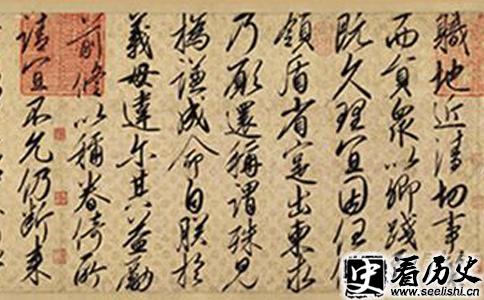 職地近清切事
而員衆以卿踐
既久理宜因任
領盾省寔出東求
乃顧還稱謂殊見
撝謙成命自朕於
義毋違尔其益勵
前修以稱眷倚所
請宜不允仍斷来
史看历史
www.seelishi.cn